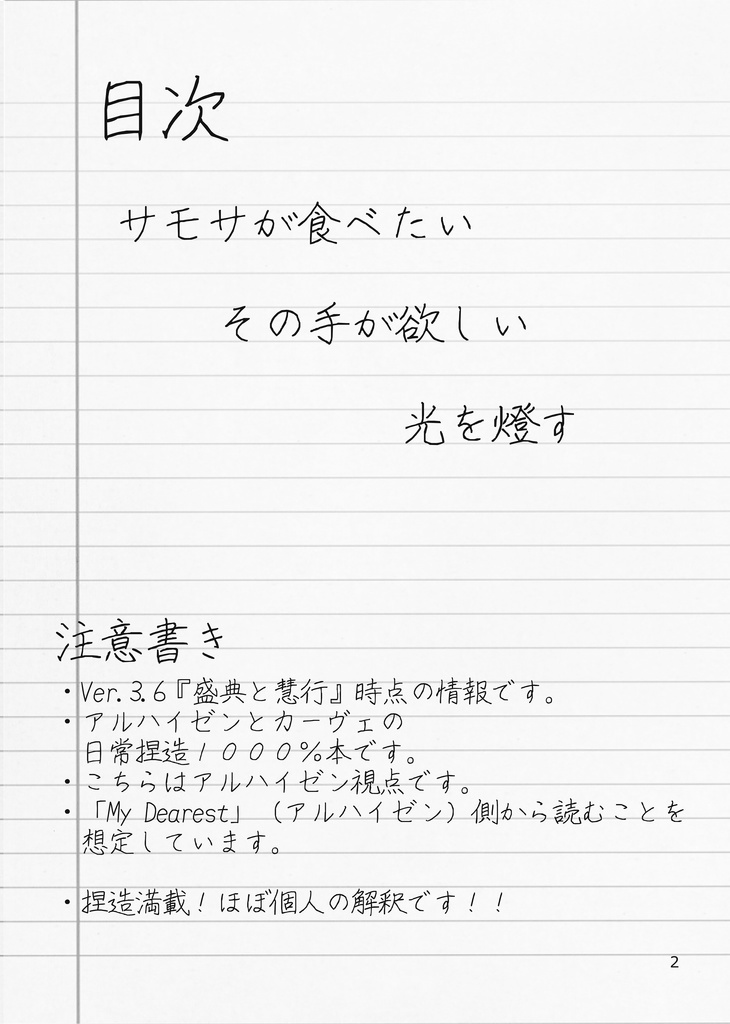 目次
サモサが食べたい
その手が欲しい
光を燈す
注意書き
・Ver.3.6『盛典と慧行』時点の情報です。
・アルハイゼンとカーヴェの
日常捏造１０００％本です。
・こちらはアルハイゼン視点です。
・「My Dearest」（アルハイゼン）側から読むことを
想定しています。
・捏造満載！ほぼ個人の解釈です！！
2